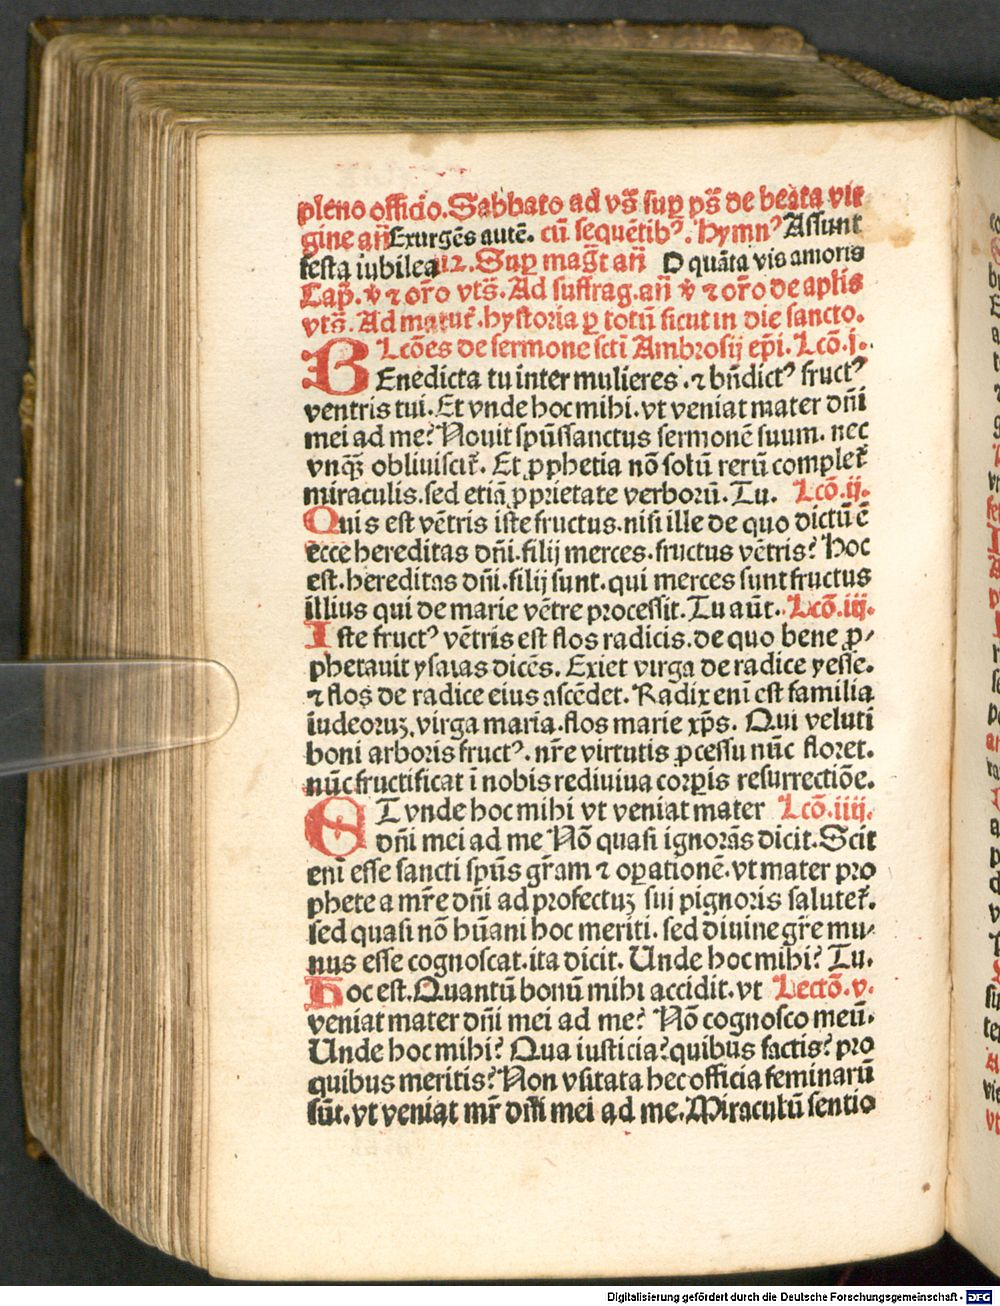 pleno officio. Sabbato ad vs̄ sup̱ ps̄ de beata vir
gine an̄ Exurgēs autē. cū sequētibꝰ. Hymnꝰ Assunt
festa iubilea 112. Sup̱ mag̃t an̄ O quāta vis amoris
Cap̱. v̄ ⁊ oro̅ vts̄. Ad suffrag. an̄ v̄ ⁊ oro̅ de aplīs
vts̄. Ad matut̄. hystoria ꝑ totū sicut in die sancto.
Lcōes de sermone sctī Ambrosij ep̄i. Lcō. j.
BEnedicta tu inter mulieres. ⁊ bn̄dictꝰ fructꝰ
ventris tui. Et vnde hoc mihi. vt veniat mater dn̄i
mei ad me? Nouit spūssanctus sermonē suum. nec
vnqꝫ obliuiscit̄. Et ꝓphetia nō solū rerū complet̄
miraculis. sed etiā ꝓprietate verborū. Tu. Lcō. ij.
Quis est vētris iste fructus. nisi ille de quo dictū ē
ecce hereditas dn̄i. filij merces. fructus vētris? Hoc
est. hereditas dn̄i. filij sunt. qui merces sunt fructus
illius qui de marie vētre processit. Tu aūt. Lcō. iij.
Iste fructꝰ vētris est flos radicis. de quo bene ꝓ-
phetauit ysaias dicēs. Exiet virga de radice yesse.
⁊ flos de radice eius ascēdet. Radix enī est familia
iudeoruꝫ, virga maria. flos marie xp̄s. Qui veluti
boni arboris fructꝰ. nr̄e virtutis ꝓcessu nūc floret.
nūc fructificat ī nobis rediuiua corp̱is resurrectiōe.
ET vnde hoc mihi vt veniat mater Lcō. iiij.
dn̄i mei ad me Nō quasi ignorās dicit. Scit
enī esse sancti spūs gr̄am ⁊ op̱ationē. vt mater pro
phete a mr̄e dn̄i ad profectuꝫ sui pignoris salutet̄.
sed quasi nō hūani hoc meriti. sed diuine gr̄e mu-
nus esse cognoscat. ita dicit. Unde hoc mihi? Tu.
Hoc est. Quantū bonū mihi accidit. vt Lectō. v.
veniat mater dn̄i mei ad me? Nō cognosco meū.
Unde hoc mihi? Qua iusticia? quibus factis? pro
quibus meritis? Non vsitata hec officia feminarū
sūt. vt veniat mr̄ dn̄i mei ad me. Miraculū sentio
Digitalisierung gefördert durch die Deutsche Forschungsgemeinschaft - DFG